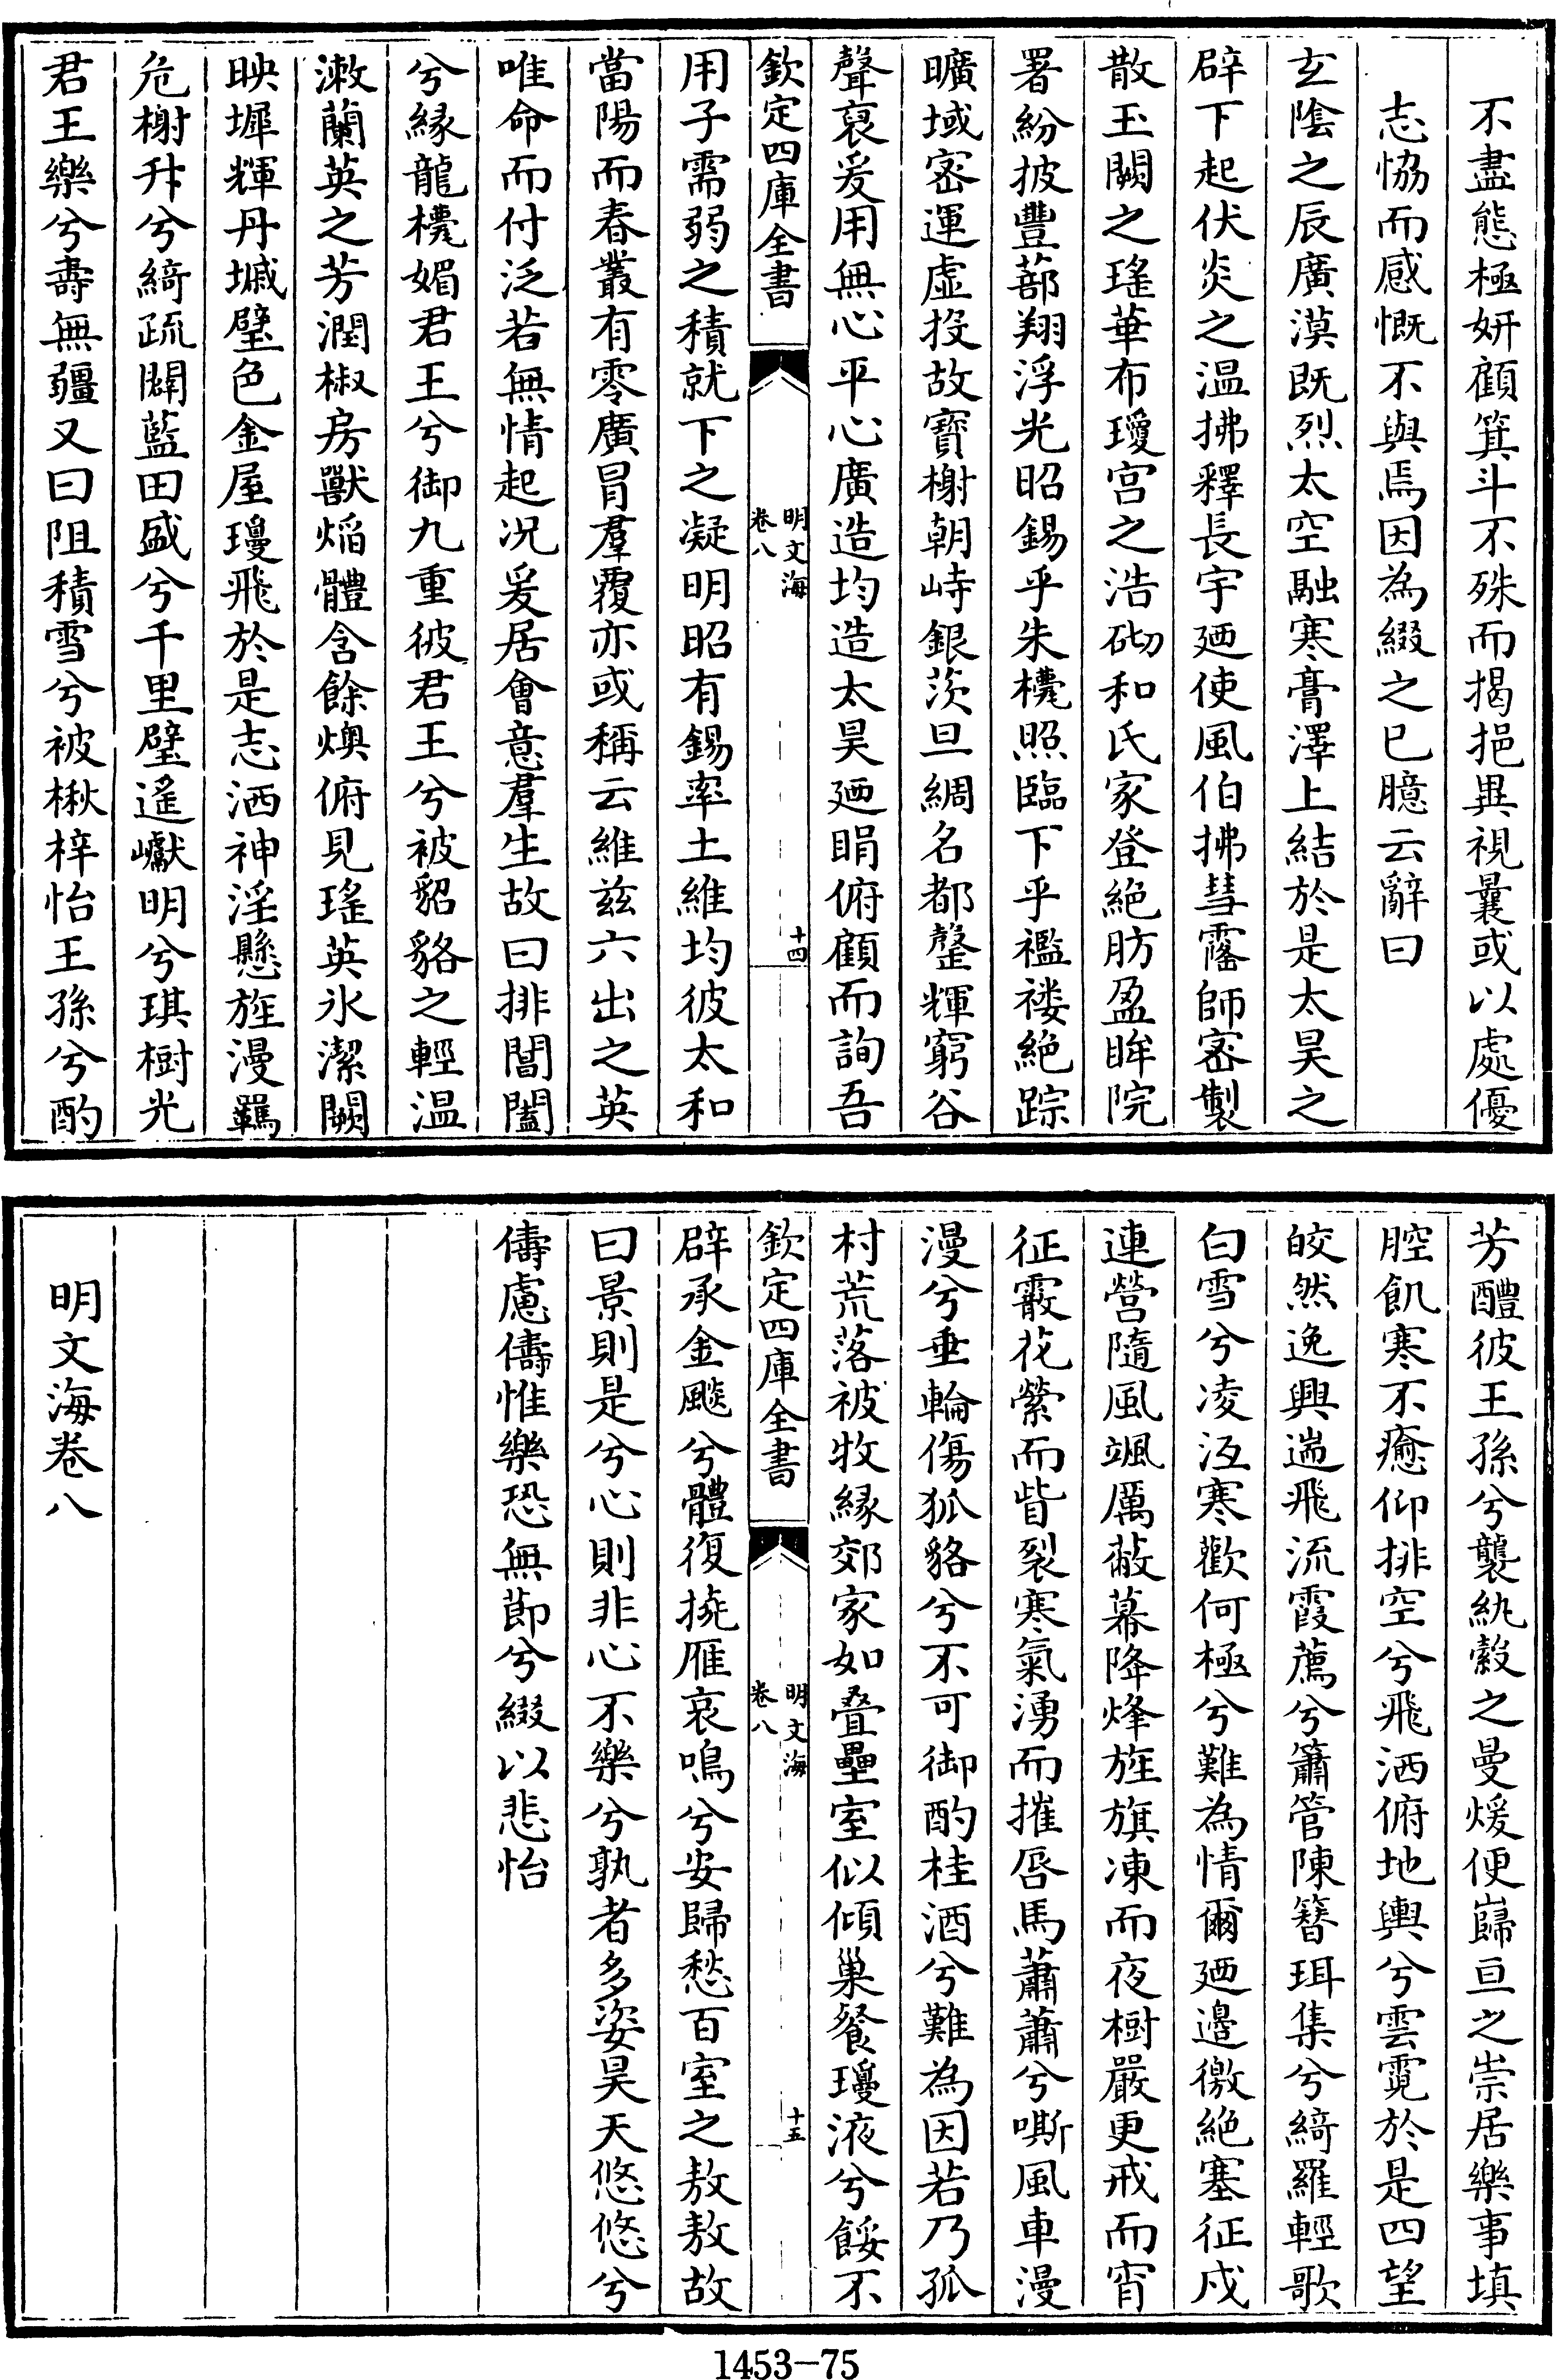 不盡態極妍顧箕斗不殊而揭挹異視曩或以處優
志恊而感慨不與焉因為綴之巳臆云辭曰
玄陰之辰廣漠既烈太空融寒膏澤上結於是太昊之
辟下起伏炎之温拂釋長宇廼使風伯拂彗霱師宻製
散玉闕之瑤華布瓊宮之浩砌和氏家登絶肪盈眸院
署紛披豐蔀翔浮光昭錫乎朱櫎照臨下乎襤褸絶踪
曠域宻運虛投故寳榭朝峙銀茨旦綢名都罄輝窮谷
聲裒爰用無心平心廣造均造太昊廼睊俯顧而詢吾
欽定四庫全書
明文海
卷八
十四
用子需弱之積就下之凝明昭有錫率土維均彼太和
當陽而春叢有零廣冐羣覆亦或稱云維兹六出之英
唯命而付泛若無情起况爰居會意羣生故曰排閶闔
兮緣龍櫎媚君王兮御九重彼君王兮被貂貉之輕温
漱蘭英之芳潤椒房獸焰體含餘燠俯見瑤英氷潔闕
映墀輝丹墄璧色金屋瓊飛於是志洒神淫懸旌漫羈
危榭升兮綺疏闢藍田盛兮千里璧遙巘明兮琪樹光
君王樂兮壽無疆又曰阻積雪兮被楸梓怡王孫兮酌
芳醴彼王孫兮襲紈縠之曼煖便巋亘之崇居樂事填
腔飢寒不癒仰排空兮飛洒俯地輿兮雲霓於是四望
皎然逸興遄飛流霞薦兮簫管陳簪珥集兮綺羅輕歌
白雪兮凌沍寒歡何極兮難為情爾廼邉徼絶塞征戍
連營隨風颯厲蔽幕降烽旌旗凍而夜樹嚴更戒而宵
征霰花縈而眥裂寒氣湧而摧唇馬蕭蕭兮嘶風車漫
漫兮垂輪傷狐貉兮不可御酌桂酒兮難為因若乃孤
村荒落被牧緣郊家如疊壘室似傾巢餐瓊液兮餒不
欽定四庫全書
明文海
卷八
十五
辟承金颷兮體復撓雁哀鳴兮安歸愁百室之敖敖故
曰景則是兮心則非心不樂兮孰者多姿昊天悠悠兮
儔慮儔惟樂恐無節兮綴以悲怡
明文海卷八
1453-75